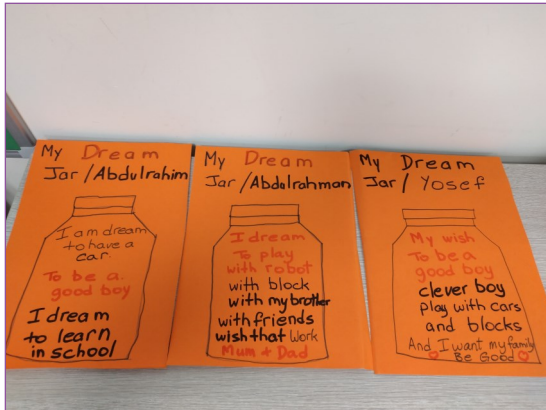 My Dream
Jar / Abdulrahim
I am dream
to have a
car.
To be a
good boy
I dream
to learn
in school
My Dream
Jar / Abdulrahman
I dream
To play
with robot
with block
with my brother
with friends
wish that work
Mum + Dad
My Dream
Jar / Yosef
My wish
To be a
good boy
clever boy
Play with cars
and blocks
And I want my family
Be Good